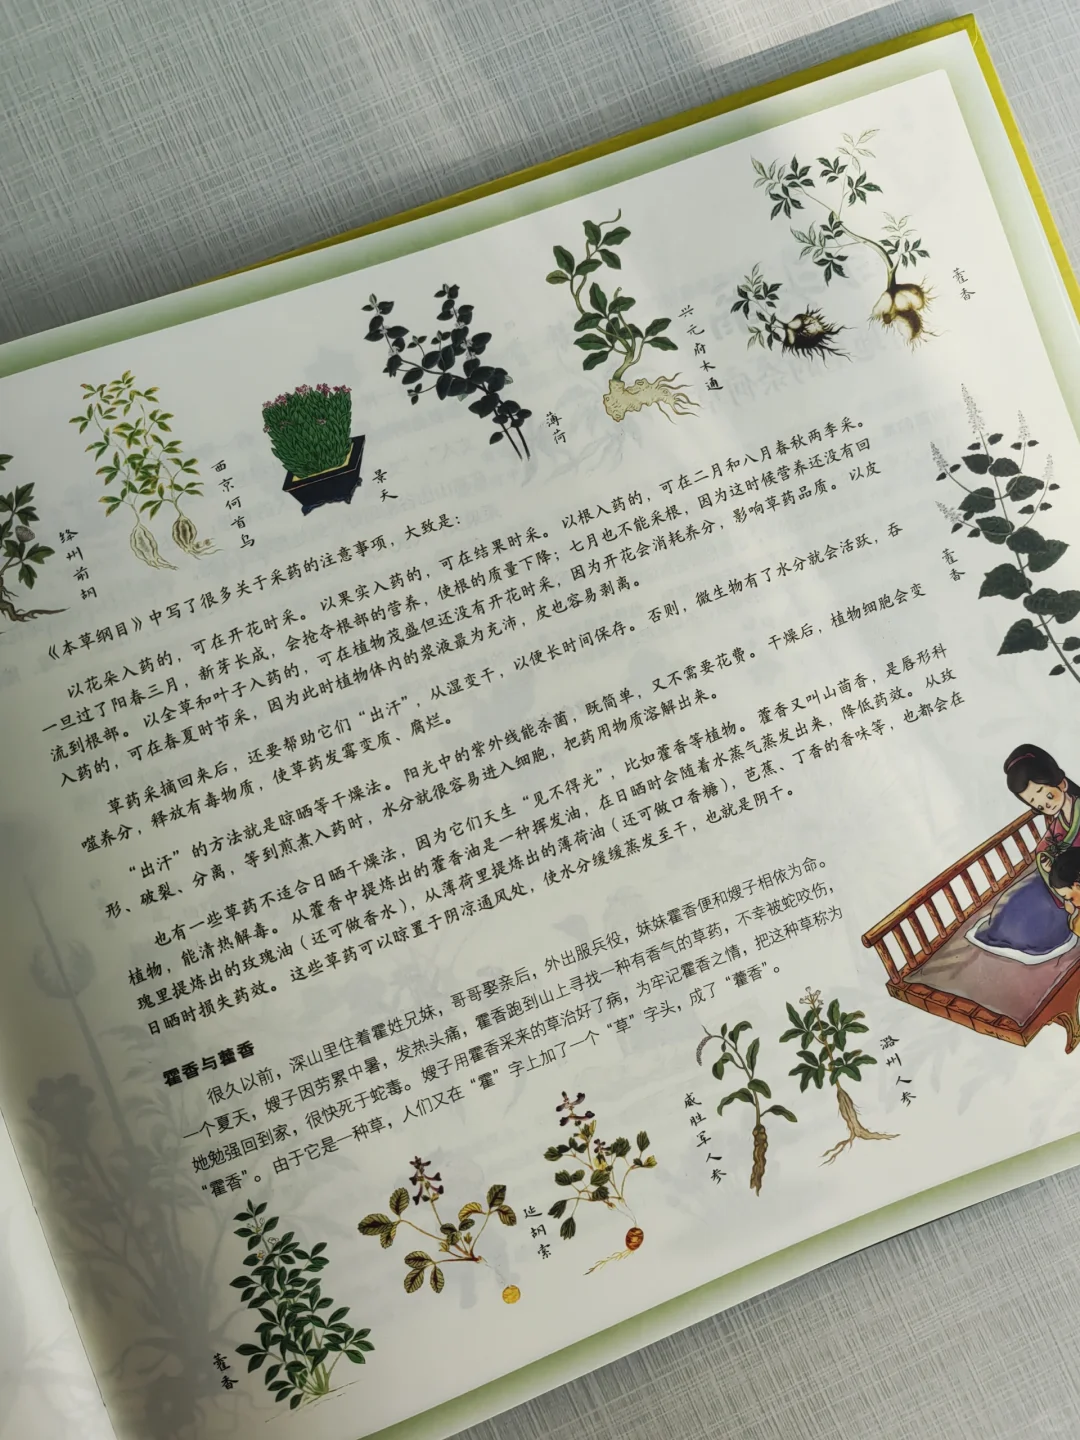 藿香
兴元府木通
薄荷
景天
西京何首乌
绛州前胡
藿香
《本草纲目》中写了很多关于采药的注意事项，大致是：
以花朵入药的，可在开花时采。以果实入药的，可在结果时采。以根入药的，可在二月和八月春秋两季采。
一旦过了阳春三月，新芽长成，会抢夺根部的营养，使根的质量下降；七月也不能采根，因为这时候营养还没有回
流到根部。以全草和叶子入药的，可在植物茂盛但还没有开花时采，因为开花会消耗养分，影响草药品质。以皮
入药的，可在春夏时节采，因为此时植物体内的浆液最为充沛，皮也容易剥离。
草药采摘回来后，还要帮助它们“出汗”，从湿变干，以便长时间保存。否则，微生物有了水分就会活跃，吞
噬养分，释放有毒物质，使草药发霉变质、腐烂。
“出汗”的方法就是晾晒等干燥法。阳光中的紫外线能杀菌，既简单，又不需要花费。干燥后，植物细胞会变
形、破裂、分离，等到煎煮入药时，水分就很容易进入细胞，把药用物质溶解出来。
也有一些草药不适合日晒干燥法，因为它们天生“见不得光”，比如藿香等植物。藿香又叫山茴香，是唇形科
植物，能清热解毒。从藿香中提炼出的藿香油是一种挥发油，在日晒时会随着水蒸气蒸发出来，降低药效。从玫
瑰里提炼出的玫瑰油（还可做香水），从薄荷里提炼出的薄荷油（还可做口香糖），芭蕉、丁香的香味等，也都会在
日晒时损失药效。这些草药可以晾置于阴凉通风处，使水分缓缓蒸发至干，也就是阴干。
霍香与藿香
很久以前，深山里住着霍姓兄妹，哥哥娶亲后，外出服兵役，妹妹霍香便和嫂子相依为命。
一个夏天，嫂子因劳累中暑，发热头痛，霍香跑到山上寻找一种有香气的草药，不幸被蛇咬伤，
她勉强回到家，很快死于蛇毒。嫂子用霍香采来的草治好了病，为牢记霍香之情，把这种草称为
“霍香”。由于它是一种草，人们又在“霍”字上加了一个“草”字头，成了“藿香”。
潞州人参
威胜军人参
延胡索
藿香